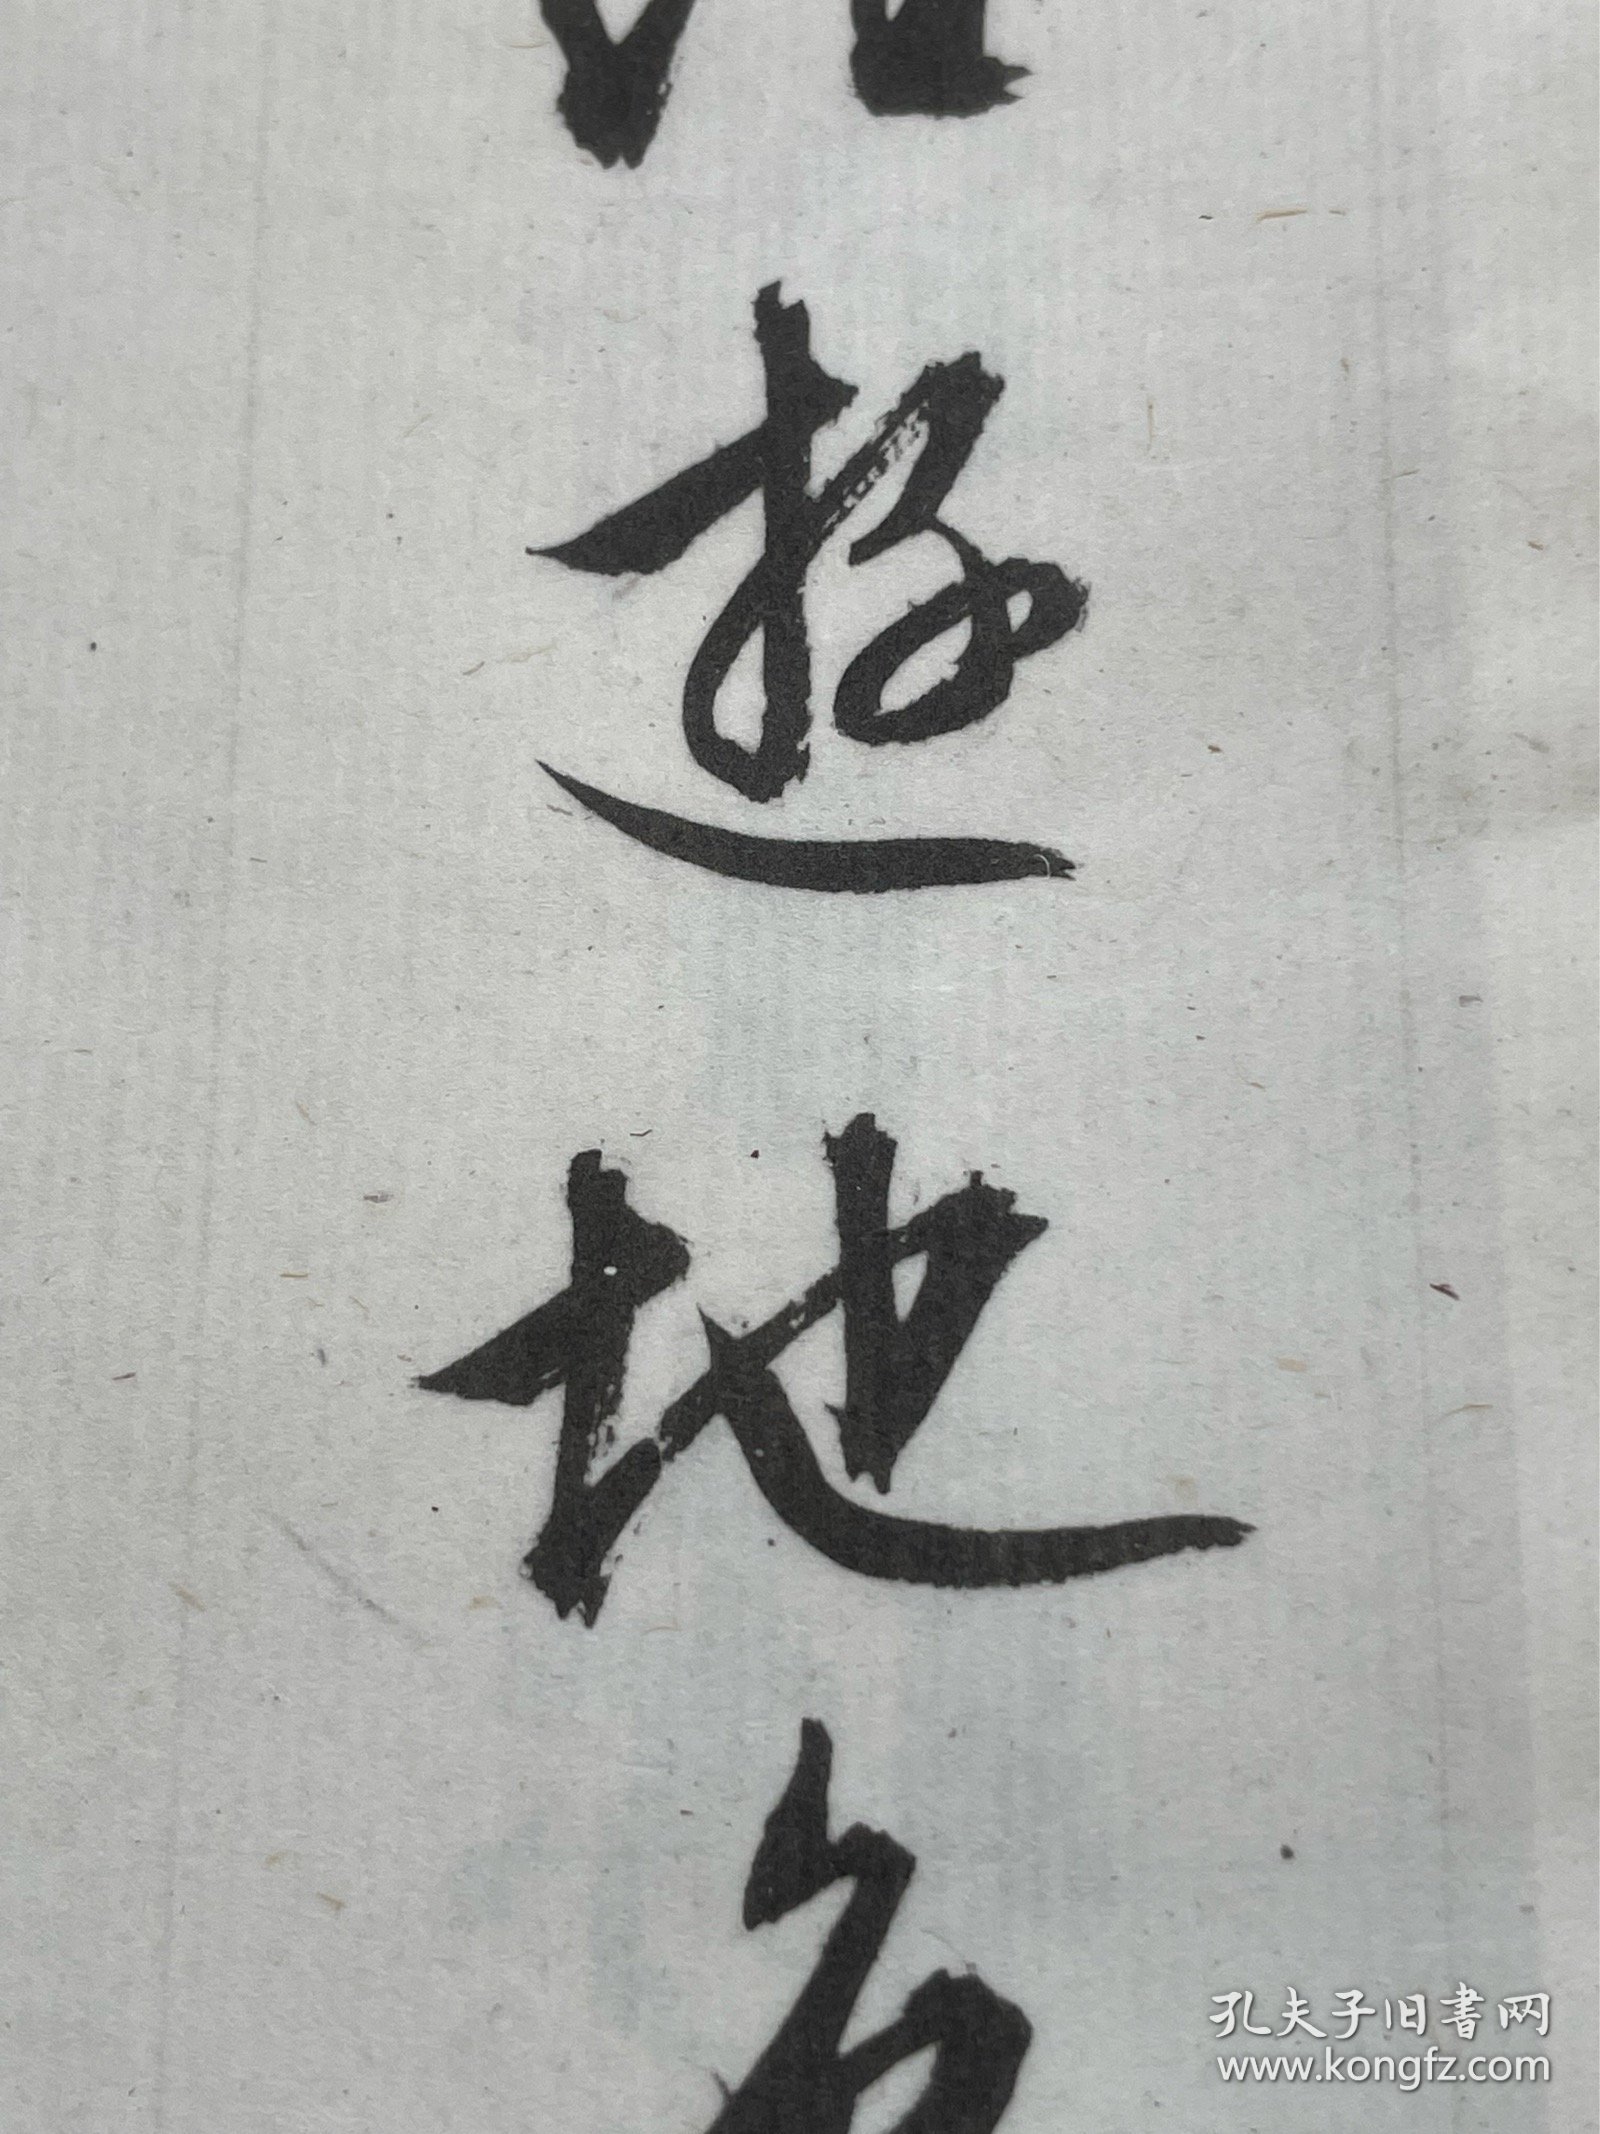 遊
地
孔夫子旧書网
www.kongfz.com